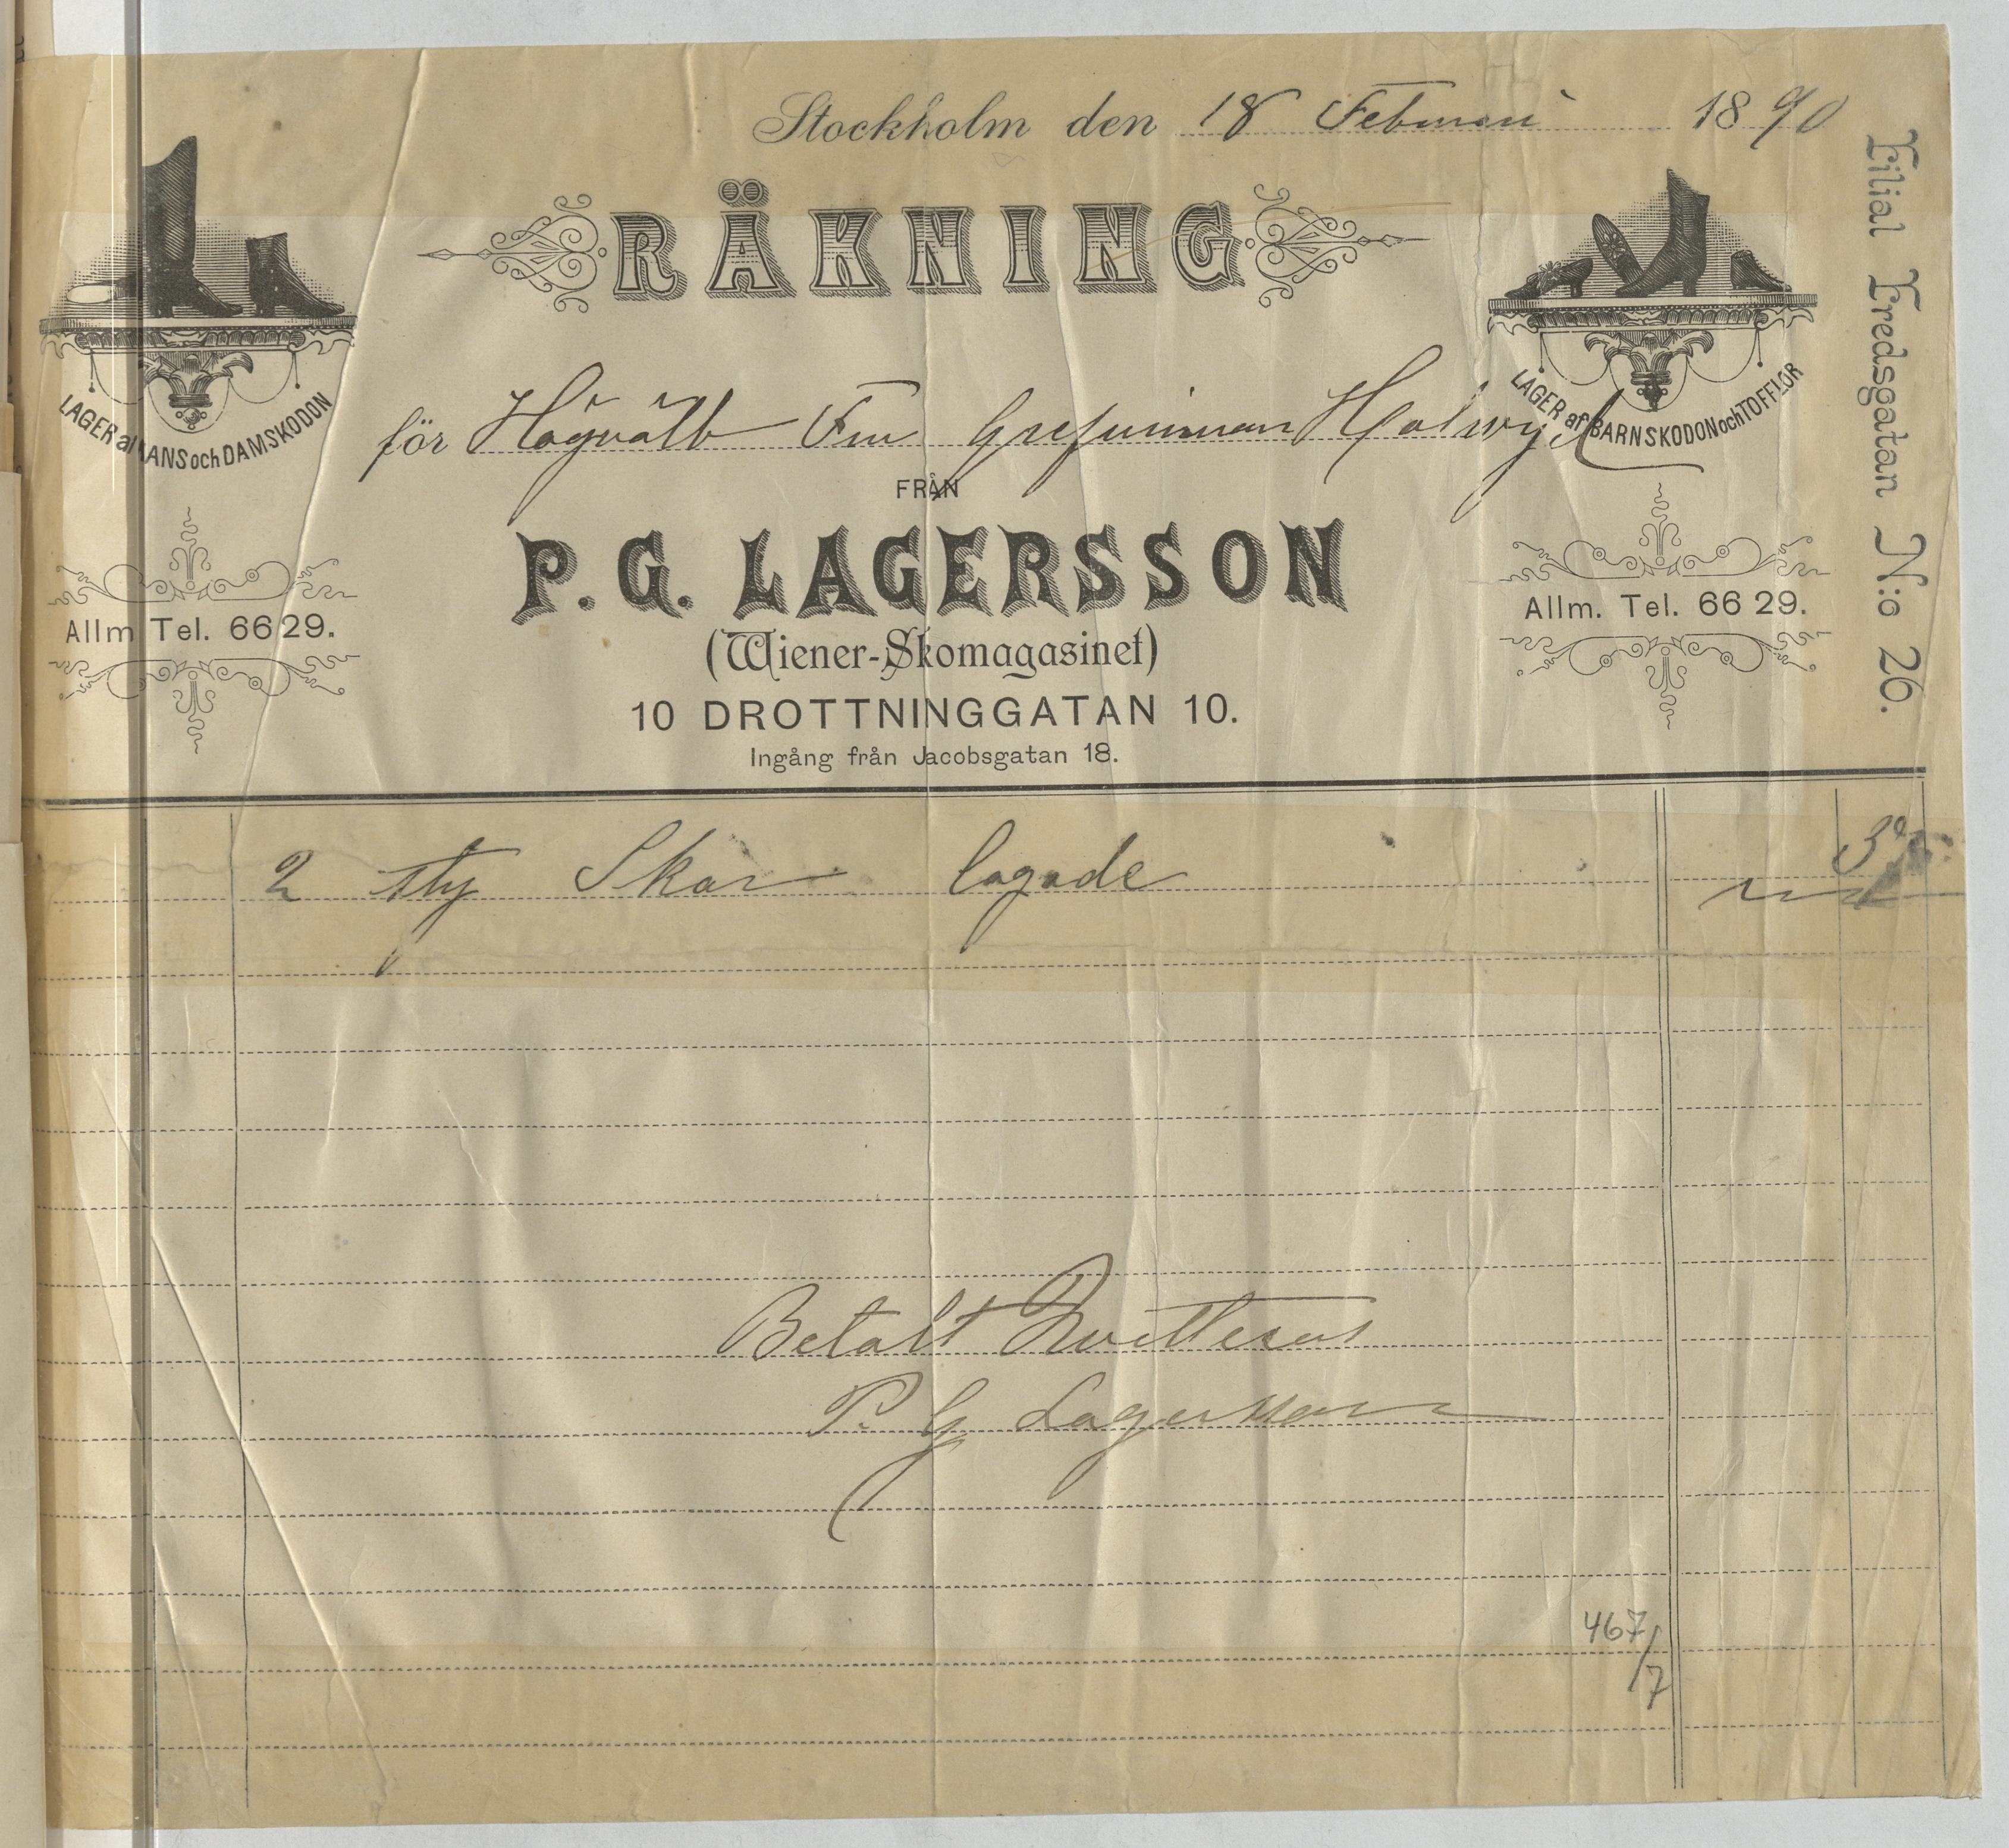 Stockholm den 18 Februari 1890
RÄKNING
för Högvälb Fru Grefvinnan Halwyl
FRÅN
P. G. LAGERSSON
(Wiener-Skomagasinet)
10 DROTTNINGGATAN 10.
Ingång från Jacobsgatan 18.
LAGER af MANS och DAMSKODON
Allm. Tel. 66 29.
LAGER af BARNSKODON och TOFFLOR
Allm. Tel. 66 29.
Filial Fredsgatan N:o 26.
2 Skor lagade
Betalt Qvitteras
P. G Lagersson
467/7